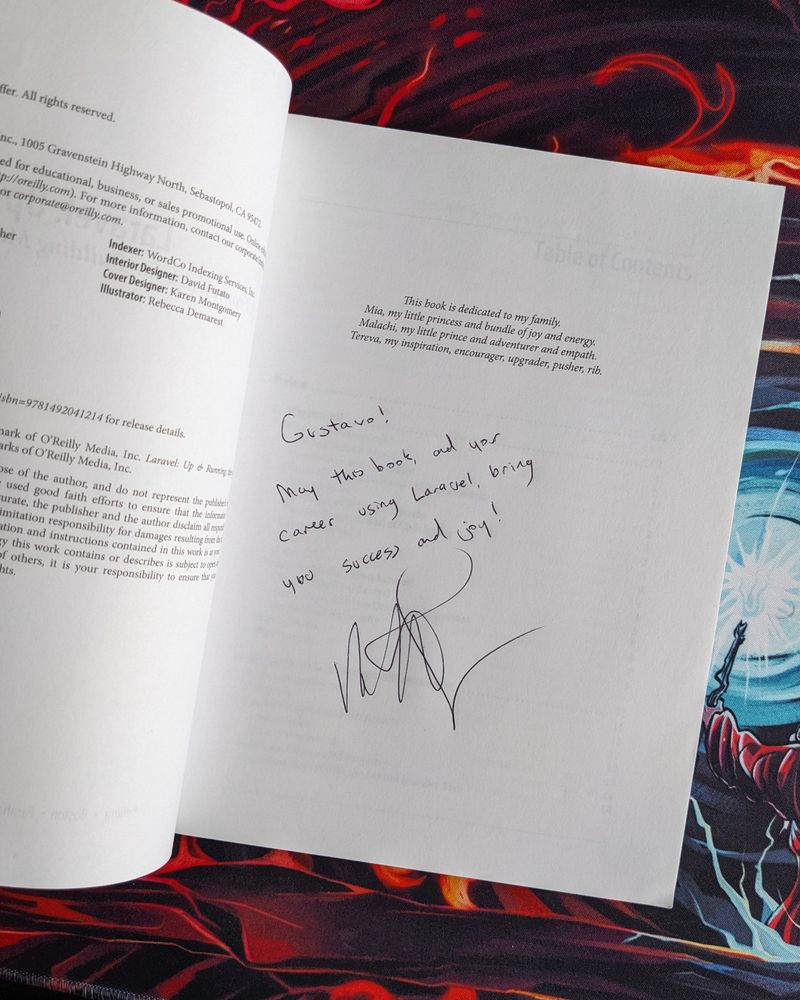 ffer. All rights reserved.
nc., 1005 Gravenstein Highway North, Sebastopol, CA 95472.
ed for educational, business, or sales promotional use. Online
p://oreilly.com). For more information, contact our corporate
or corporate@oreilly.com.
her
Indexer: WordCo Indexing Services, Inc.
Interior Designer: David Futato
Cover Designer: Karen Montgomery
Illustrator: Rebecca Demarest
isbn=9781492041214 for release details.
mark of O'Reilly Media, Inc. Laravel: Up & Running,
arks of O'Reilly Media, Inc.
ose of the author, and do not represent the publisher's
used good faith efforts to ensure that the
urate, the publisher and the author disclaim all
imitation responsibility for damages resulting from
ation and instructions contained in this work is at
gy this work contains or describes is subject to open
of others, it is your responsibility to ensure that
hts.
Table of Contents
This book is dedicated to my family.
Mia, my little princess and bundle of joy and energy.
Malachi, my little prince and adventurer and empath.
Tereva, my inspiration, encourager, upgrader, pusher, rib.
Gustavo!
May this book, and your
career using Laravel, bring
you success and joy!